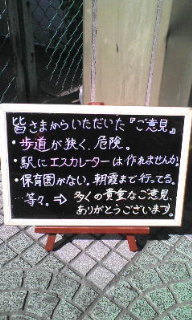 皆さまからいただいた『ご意見』
・歩道が狭く、危険。
・駅にエスカレーターは作れませんか?
・保育園がない。朝霞まで行ってる。
等々。⇒ 多くの貴重なご意見、
ありがとうございます♪